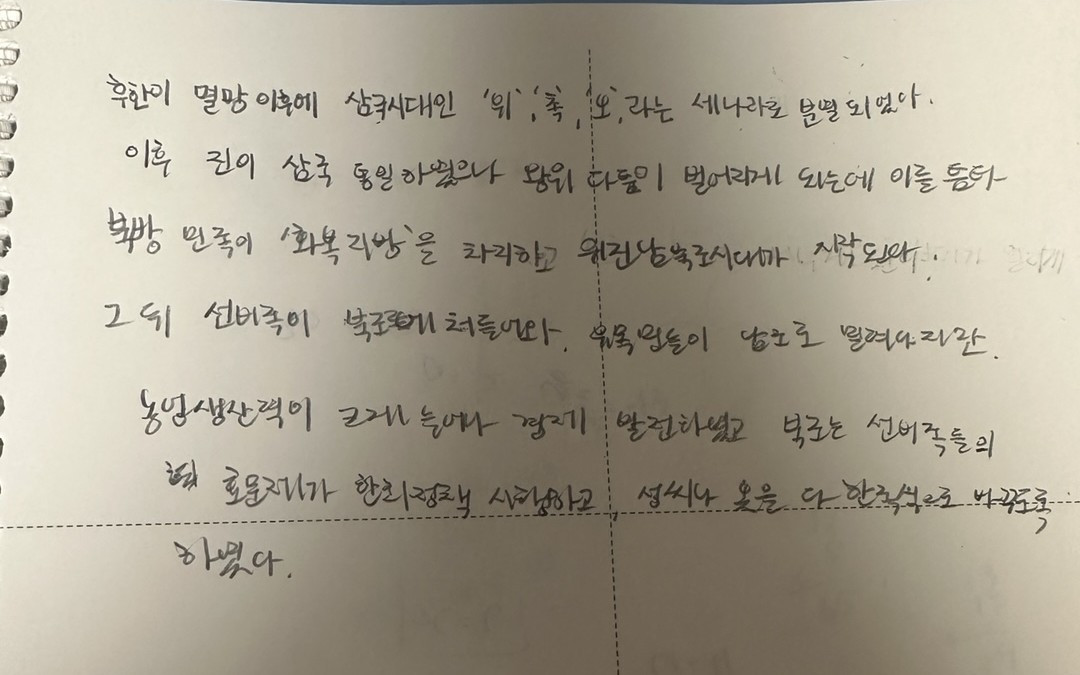 후한이 멸망 이후에 삼국시대인 '위', '촉', '오', 라는 세나라로 분열되었다.
이후 진이 삼국 통일하였으나 왕위 다툼이 벌어리게 되는데 이를 틈타
북방 민족이 '화북지방'을 차리하고 위진남북조시대가 시작된다.
그 뒤 선비족이 북조에 쳐들어와. 위욱민들이 남조로 밀려나지만.
농업생산력이 크게 늘어나 경제 발전하였고 북조는 선비족들의
효문제가 한화정책 시행하고, 성씨나 옷을 다 한족식으로 바꾸도록
하였다.